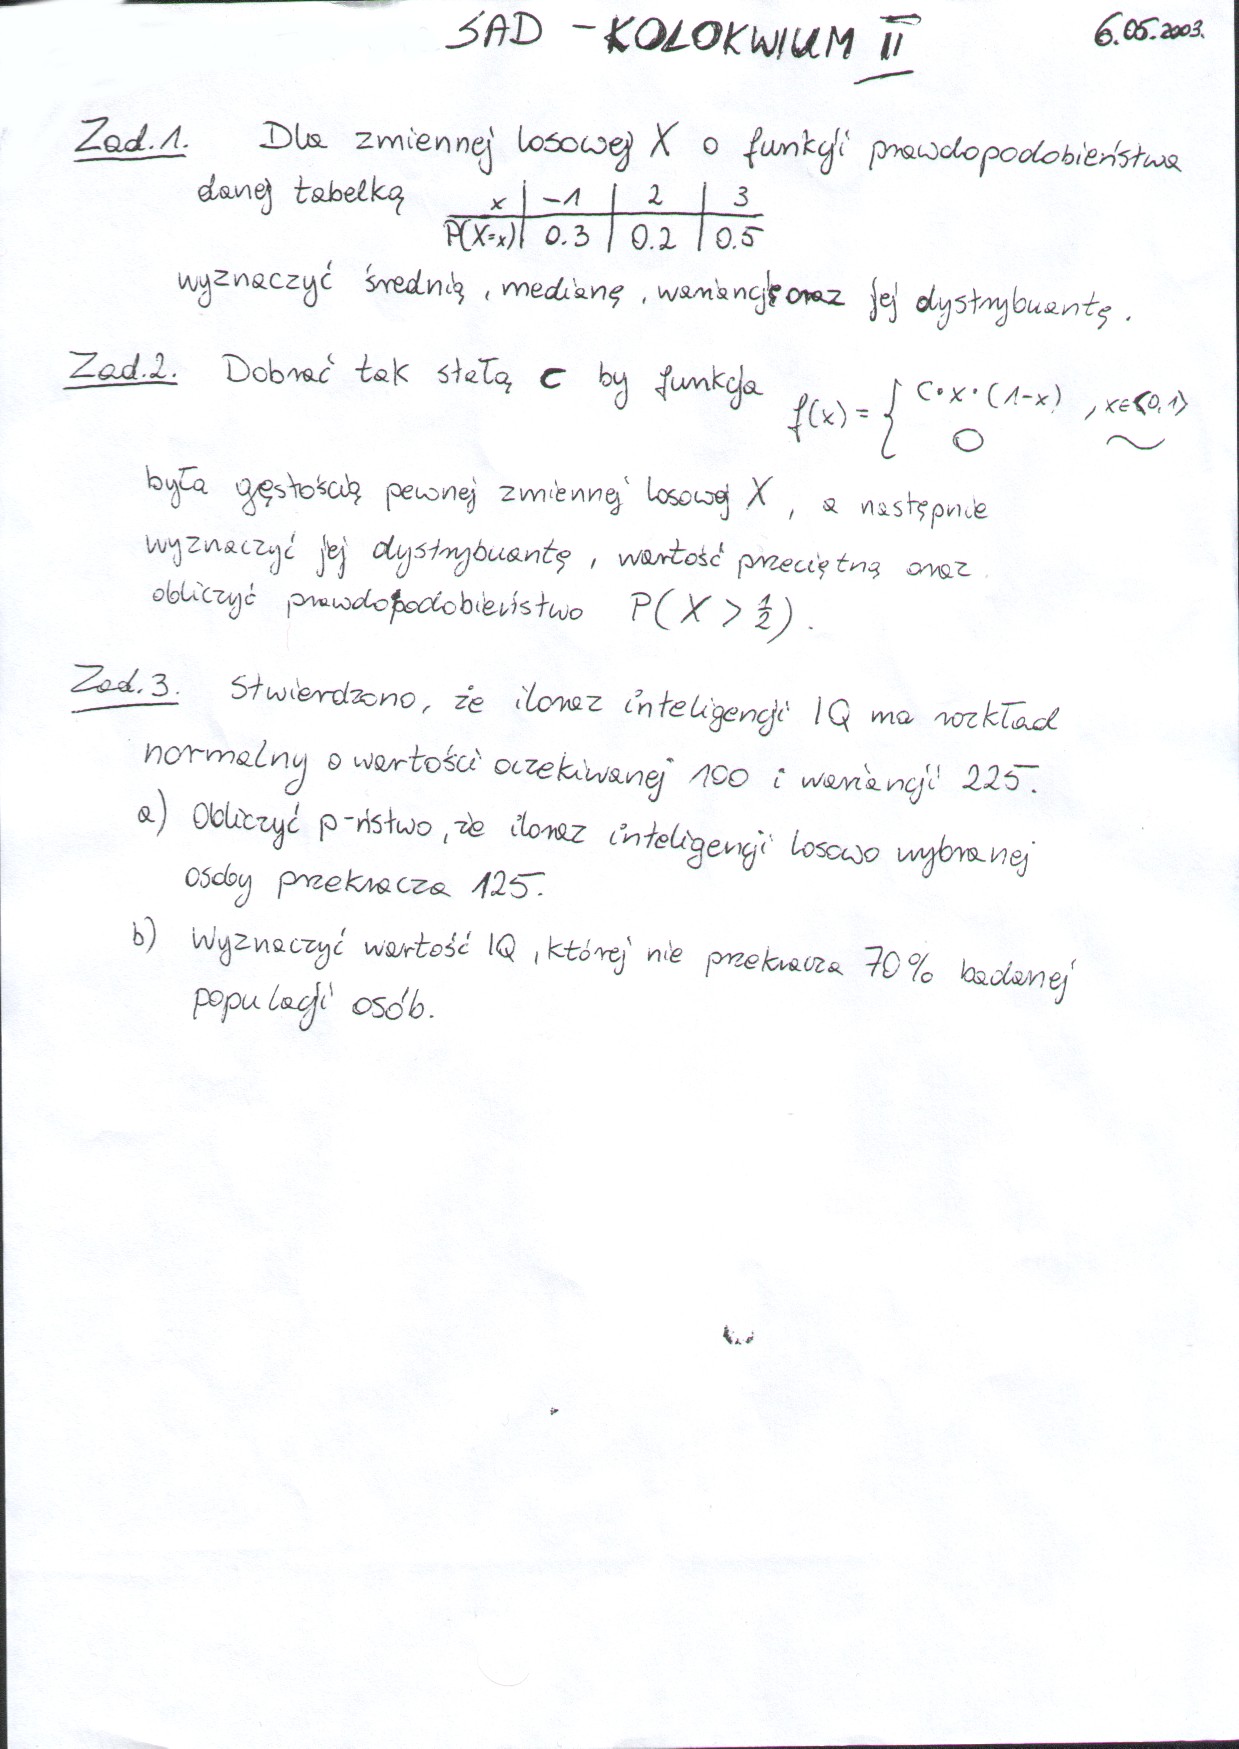 SAD - KOLOKWIUM II
6.05.2003.
Zad.1. Dla zmiennej losowej X o funkcji prawdopodobieństwa
danej tabelką
x | -1 | 2 | 3
P(X=x) | 0.3 | 0.2 | 0.5
wyznaczyć średnią, medianę, wariancję oraz jej dystrybuantę.
Zad.2. Dobrać tak stałą c by funkcja f(x) = { c·x·(1-x) , x∈<0,1>
0 ~
była gęstością pewnej zmiennej losowej X, a następnie
wyznaczyć jej dystrybuantę, wartość przeciętną oraz
obliczyć prawdopodobieństwo P(X > 1/2).
Zad.3. Stwierdzono, że iloraz inteligencji IQ ma rozkład
normalny o wartości oczekiwanej 100 i wariancji 225.
a) Obliczyć p-ństwo, że iloraz inteligencji losowo wybranej
osoby przekracza 125.
b) Wyznaczyć wartość IQ, której nie przekracza 70% badanej
populacji osób.